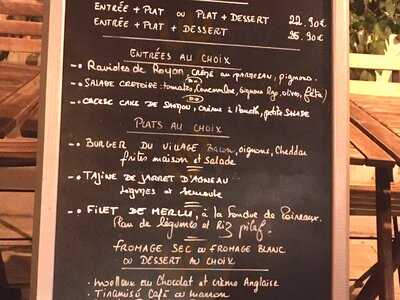 ENTRÉE + PLAT OU PLAT + DESSERT 22.90€
ENTRÉE + PLAT + DESSERT 25.90€
ENTRÉES AU CHOIX
Ravioles de Royan, crème au parmesan, pignons.
SALADE CRETOISE: tomates, concombre, oignons rgo, olives, féta)
CHEESE CAKE DE SAUMON, crème à l'aneth, petite SALADE
PLATS AU CHOIX
BURGER DU VILLAGE Bacon, oignons, Cheddar
frites maison et Salade
TAJINE DE JARRET D'AGNEAU
Légumes et Semoule
FILET DE MERLU, à la fondue de Poireaux.
Flan de légumes et Riz pilaf.
FROMAGE SEC OU FROMAGE BLANC
OU DESSERT AU CHOIX
. moelleux au Chocolat et crème Anglaise
. Tiramisu Café ou marron